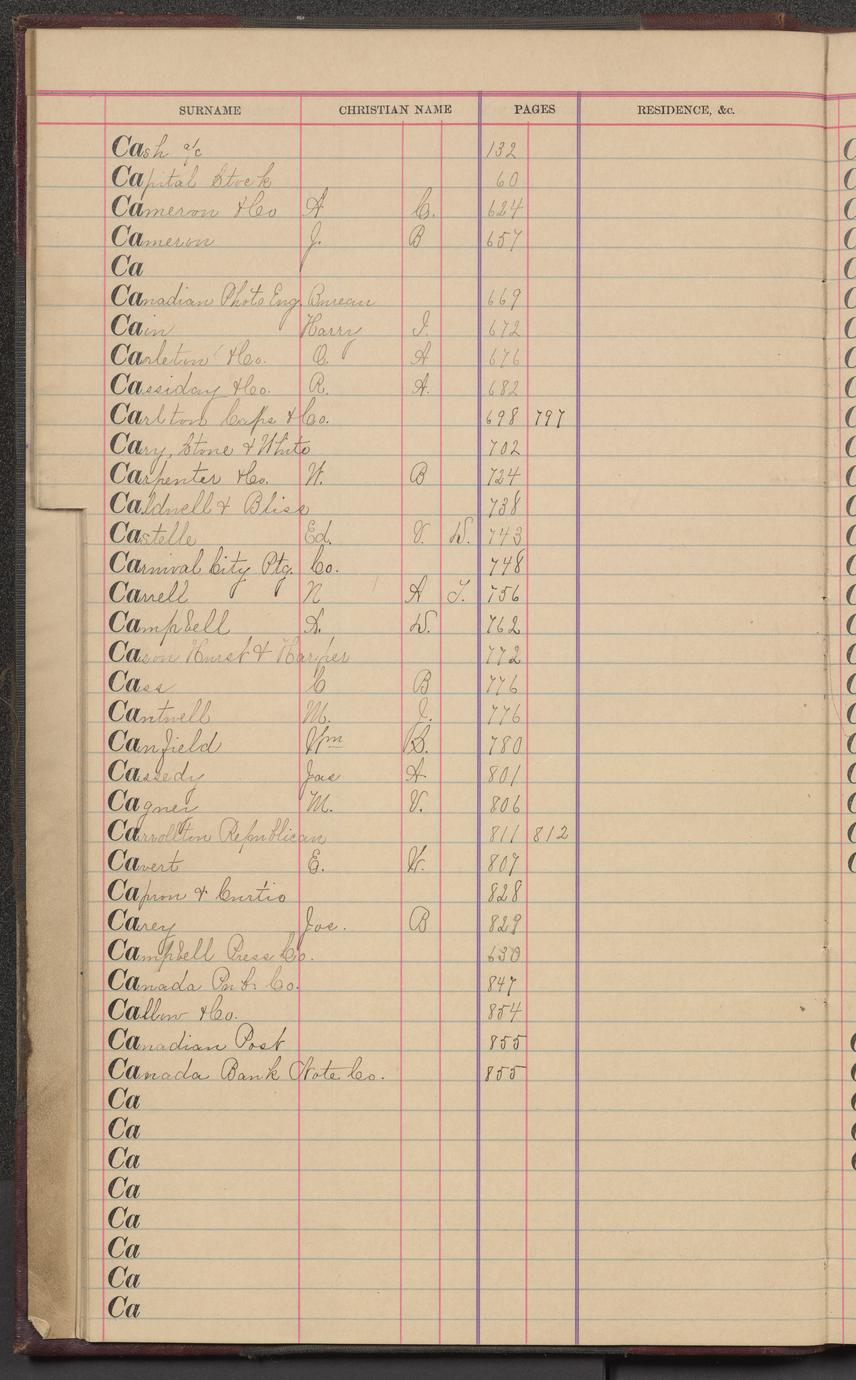 SURNAME CHRISTIAN NAME PAGES RESIDENCE, &c.
Cash a/c 132
Capital Stock 60
Cameron & Co A C. 624
Cameron J. B 657
Ca
Canadian Photo Eng. Bureau 669
Cain Harry I. 672
Carleton & Co. O. A 676
Cassiday & Co. R. A. 682
Carlton Caps & Co. 698 797
Cary, Stone & White 702
Carpenter & Co. W. B 724
Caldwell & Bliss 738
Castelle Ed. V. W. 743
Carnival City Ptg. Co. 748
Carrell N A T. 756
Campbell A. W. 762
Cason Hurst & Harper 772
Cass C B 776
Cantwell M. I. 776
Canfield Wm B. 780
Cassedy Jas A. 801
Cagney M. V. 806
Carrollton Republican 811 812
Cavert E. W. 807
Capron & Curtis 828
Carey Jos. B 829
Campbell Press Co. 630
Canada Pub. Co. 847
& Co. 854
Canadian Post 855
Canada Bank Note Co. 855
Ca
Ca
Ca
Ca
Ca
Ca
Ca
Ca